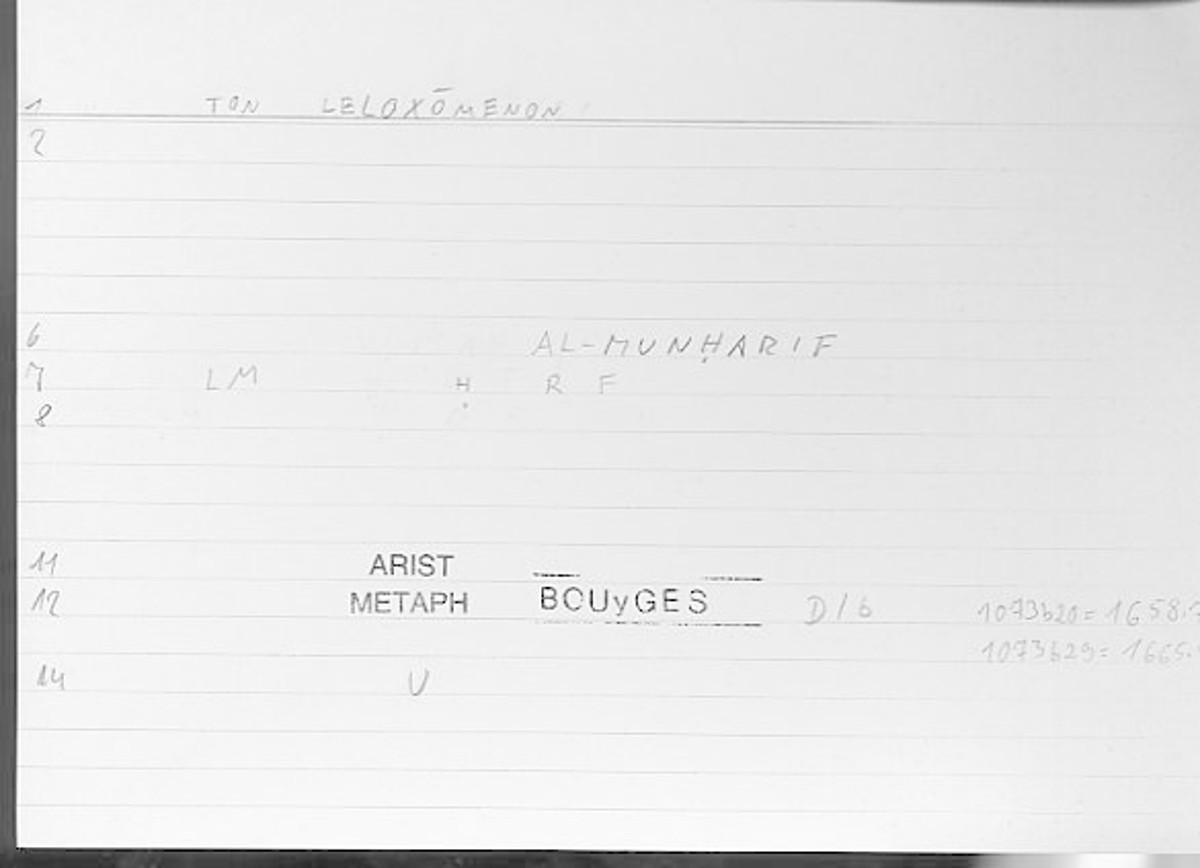 1 TON LELOXŌMENON
2
6 AL-MUNḤARIF
7 LM Ḥ R F
8
11 ARIST
12 METAPH BOUyGES D/6 1073b20=1658.7
1073b29=1665.
14 U